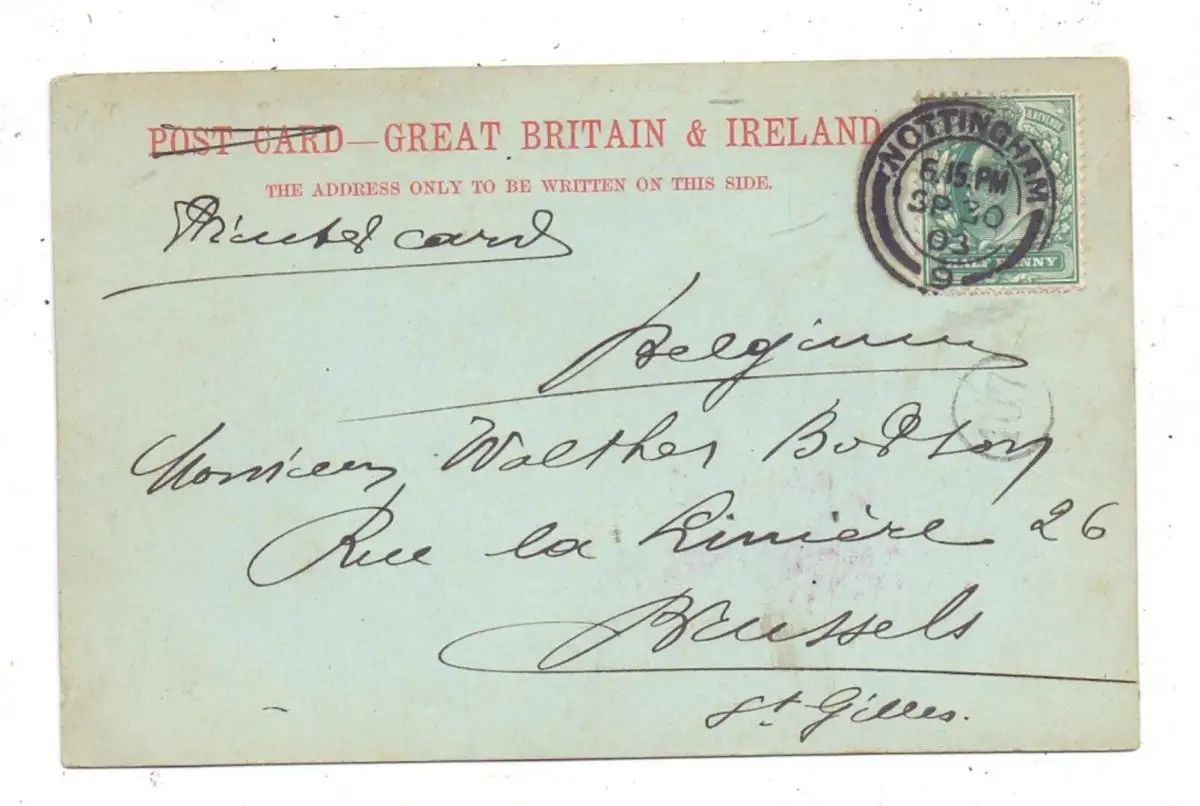 POST CARD—GREAT BRITAIN & IRELAND
THE ADDRESS ONLY TO BE WRITTEN ON THIS SIDE.
& REVENUE
HALF PENNY
NOTTINGHAM
6.15.PM
SP 30
03
9
Printed card
Belgium
107
Monsieur Walther Bodson
Rue la Linière 26
Brussels
St Gilles.